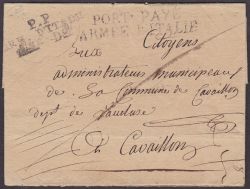 P. P.
PORT PAYÉ
ARMÉE D'ITALIE
Aux Citoyens
administrateurs municipaux
de la Commune de Cavaillon
dept de Vaucluse
à Cavaillon